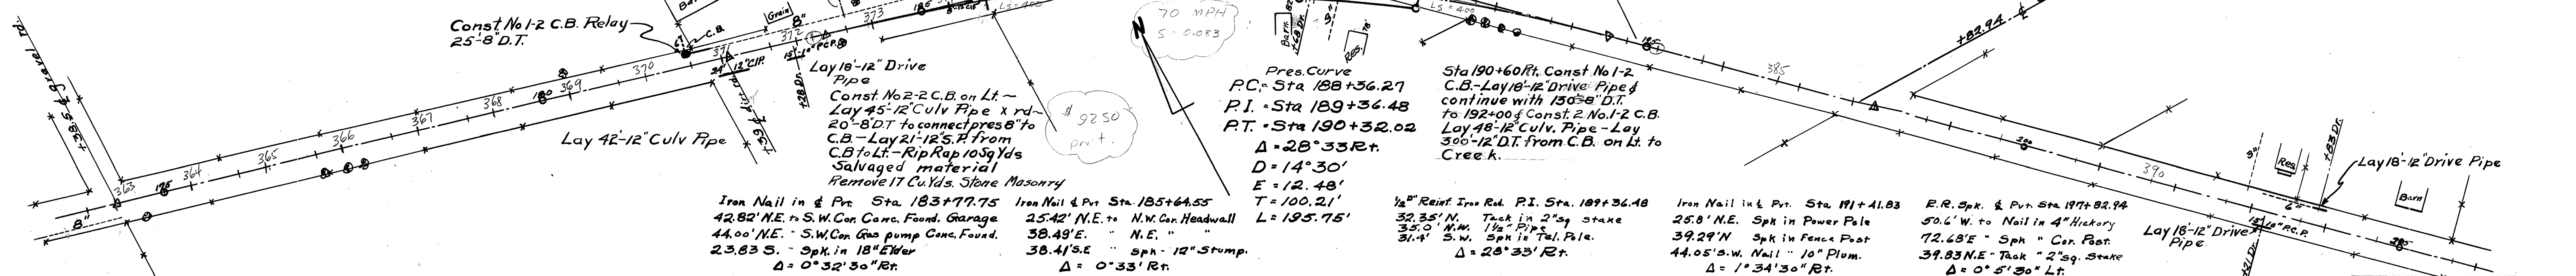 Const. No 1-2 C.B. Relay
25'-8" D.T.
C.B.
Grain
8"
12" C.I.P.
+38.5 ₵ gravel rd
363
364
365
366
367
368
369
370
371
372
373
175
180
185
8"
Lay 42'-12" Culv Pipe
Lay 18'-12" Drive
Pipe
Const. No 2-2 C.B. on Lt. ~
Lay 45'-12" Culv Pipe x rd~
20'-8" D.T. to connect pres 8" to
C.B. - Lay 21'-12" S.P. from
C.B. to Lt. - Rip Rap 10 Sq Yds
Salvaged material
Remove 17 Cu. Yds. Stone Masonry
LS=400
70 MPH
S = 0.083
$ 9250
N
Barn
+68 Dr.
Res.
78'
LS = 400
Pres. Curve
P.C. = Sta 188+36.27
P.I. = Sta 189+36.48
P.T. = Sta 190+32.02
Δ = 28°33' Rt.
D = 14°30'
E = 12.48'
T = 100.21'
L = 195.75'
Sta 190+60 Rt. Const No 1-2
C.B. - Lay 18'-12" Drive Pipe &
continue with 130'-8" D.T.
to 192+00 & Const. 2 No. 1-2 C.B.
Lay 48'-12" Culv. Pipe - Lay
300'-12" D.T. from C.B. on Lt. to
Creek.
385
+82.94 ₵
390
8"
Res
+83 Dr.
Lay 18'-12" Drive Pipe
Barn
6"
10" P.C.P.
Lay 18'-12" Drive
Pipe
+21 D.
Iron Nail in ₵ Pvt Sta 183+77.75
42.82' N.E. to S.W. Cor. Conc. Found. Garage
44.00' N.E. " S.W. Cor Gas pump Conc. Found.
23.83 S. " Spk. in 18" Elder
Δ = 0°32'30" Rt.
Iron Nail ₵ Pvt Sta. 185+64.55
25.42' N.E. to N.W. Cor. Headwall
38.49' E. " N.E. " "
38.41' S.E " Spk - 12" Stump.
Δ = 0°33' Rt.
1/2" Reinf. Iron Rod. P.I. Sta. 189+36.48
32.35' N. Tack in 2" sq stake
35.0' N.W. 1 1/2" Pipe
31.4' S.W. Spk in Tel. Pole.
Δ = 28°33' Rt.
Iron Nail in ₵ Pvt. Sta 191+41.83
25.8' N.E. Spk in Power Pole
39.29' N Spk in Fence Post
44.05' S.W. Nail " 10" Plum.
Δ = 1°34'30" Rt.
R.R. Spk. ₵ Pvt. Sta 197+82.94
50.6' W. to Nail in 4" Hickory
72.68' E " Spk " Cor. Post.
39.83 N.E - Tack " 2" sq. Stake
Δ = 0°5'30" Lt.